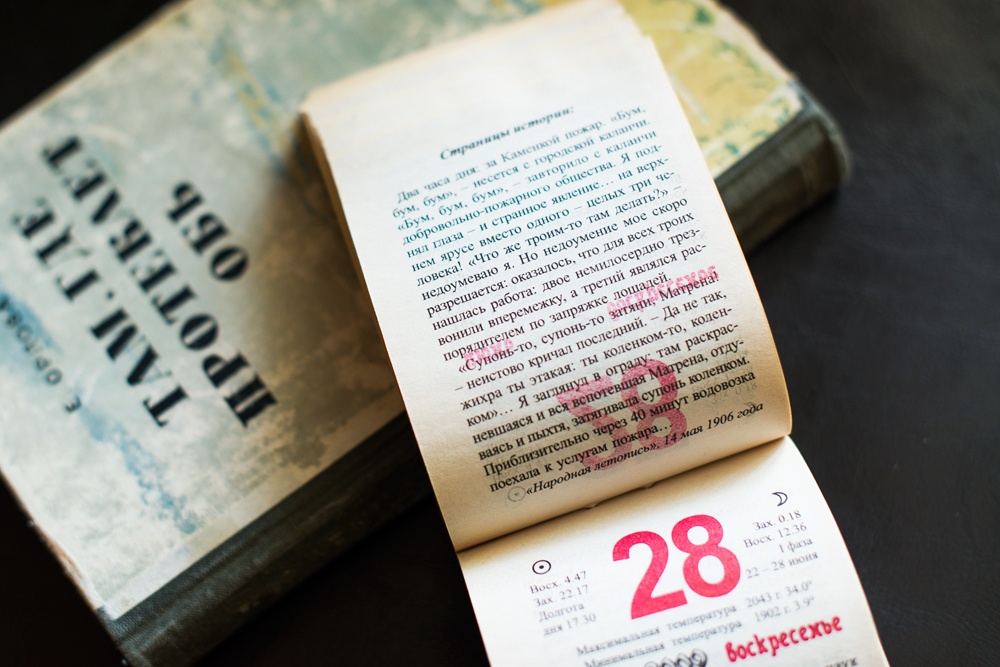 Е. ОРЛОВА
ТАМ, ГДЕ
ПРОТЕКАЕТ
ОБЬ
Страницы истории:
Два часа дня: за Каменкой пожар. «Бум,
бум, бум», – несется с городской каланчи.
«Бум, бум, бум», – завторило с каланчи
добровольно-пожарного общества. Я под-
нял глаза – и странное явление... на верх-
нем ярусе вместо одного – целых три че-
ловека! «Что же троим-то там делать?» –
недоумеваю я. Но недоумение мое скоро
разрешается: оказалось, что для всех троих
нашлась работа: двое немилосердно трез-
вонили вперемежку, а третий являлся рас-
порядителем по запряжке лошадей.
«Супонь-то, супонь-то затяни, Матрена!
– неистово кричал последний. – Да не так,
жихра ты этакая: ты коленком-то, колен-
ком»... Я заглянул в ограду, там раскрас-
невшаяся и вся вспотевшая Матрена, отду-
ваясь и пыхтя, затягивала супонь коленком.
Приблизительно через 40 минут водовозка
поехала к услугам пожара...
«Народная летопись», 14 мая 1906 года
28
Восх. 4.47
Зах. 22.17
Долгота
дня 17.30
Зах. 0.18
Восх. 12.36
I фаза
22 – 28 июня
Максимальная температура 2043 г. 34.0°
Минимальная температура 1902 г. 3.9°
воскресенье